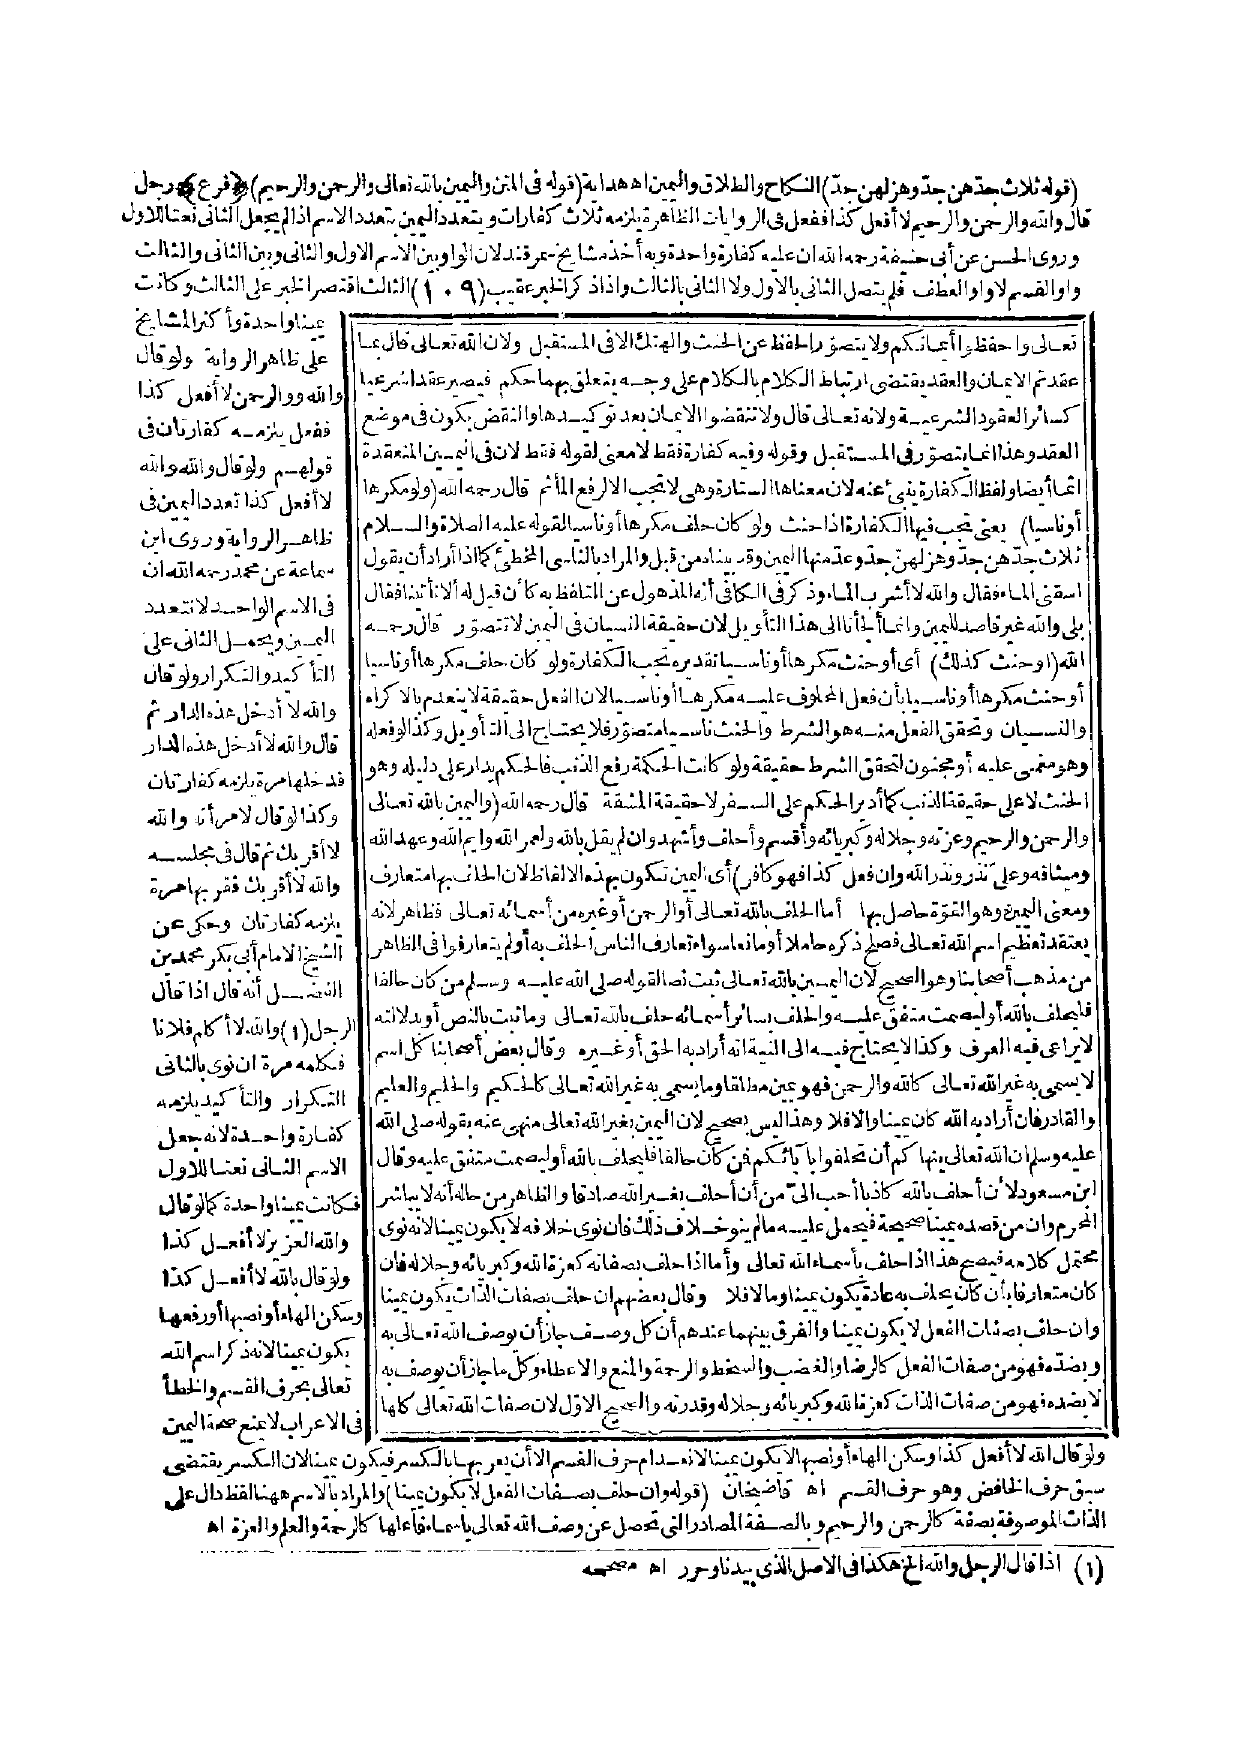 (قوله ثلاث جدهن جد وهزلهن جد) النكاح والطلاق واليمين اه هداية (قوله في المتن واليمين بالله تعالى والرحمن والرحيم) ﴿فرع﴾ رجل
قال والله والرحمن والرحيم لا أفعل كذا ففعل في الروايات الظاهرة يلزمه ثلاث كفارات ويتعدد اليمين بتعدد الاسم اذا لم يجعل الثاني نعتا للاول
وروى الحسن عن أبي حنيفة رحمه الله ان عليه كفارة واحدة وبه أخذ مشايخ سمرقند لان الواو بين الاسم الاول والثاني وبين الثاني والثالث
واو القسم لا واو العطف فلم يتصل الثاني بالاول ولا الثاني بالثالث واذا ذكر الخبر عقيب (١٠٩) الثالث اقتصر الخبر على الثالث وكانت
يمينا واحدة وأكثر المشايخ
على ظاهر الرواية ولو قال
والله ووالرحمن لا أفعل كذا
ففعل يلزمه كفارتان في
قولهم ولو قال والله والله
لا أفعل كذا تعدد اليمين في
ظاهر الرواية وروى ابن
سماعة عن محمد رحمه الله ان
في الاسم الواحد لا تتعدد
اليمين ويحمل الثاني على
التأكيد والتكرار ولو قال
والله لا أدخل هذه الدار ثم
قال والله لا أدخل هذه الدار
فدخلها مرة يلزمه كفارتان
وكذا لو قال لامرأته والله
لا أقربك ثم قال في مجلسه
والله لا أقربك فقربها مرة
يلزمه كفارتان وحكى عن
الشيخ الامام أبي بكر محمد بن
الفضل أنه قال اذا قال
الرجل (١) والله لا أكلم فلانا
فكلمه مرة ان نوى بالثاني
التكرار والتأكيد يلزمه
كفارة واحدة لانه جعل
الاسم الثاني نعتا للاول
فكانت يمينا واحدة كما لو قال
والله العزيز لا أفعل كذا
ولو قال بالله لا أفعل كذا
وسكن الهاء أو نصبها أو رفعها
يكون يمينا لانه ذكر اسم الله
تعالى بحرف القسم والخطأ
في الاعراب لا يمنع صحة اليمين
تعالى واحفظوا أيمانكم ولا يتصور الحفظ عن الحنث والهتك الا في المستقبل ولان الله تعالى قال بما
عقدتم الايمان والعقد يقتضي ارتباط الكلام بالكلام على وجه يتعلق بهما حكم فيصير عقدا شرعيا
كسائر العقود الشرعية ولانه تعالى قال ولا تنقضوا الايمان بعد توكيدها والنقض يكون في موضع
العقد وهذا انما يتصور في المستقبل وقوله وفيه كفارة فقط لا معنى لقوله فقط لان في اليمين المنعقدة
اثما أيضا ولفظ الكفارة ينبئ عنه لان معناها الستارة وهي لا تجب الا لرفع المأثم قال رحمه الله (ولو مكرها
أو ناسيا) يعني تجب فيها الكفارة اذا حنث ولو كان حلف مكرها أو ناسيا لقوله عليه الصلاة والسلام
ثلاث جدهن جد وهزلهن جد وعد منها اليمين وقد بيناه من قبل والمراد بالناسي المخطئ كما اذا أراد أن يقول
اسقني الماء فقال والله لا أشرب الماء وذكر في الكافي أنه المذهول عن التلفظ به كأن قيل له ألا تأتينا فقال
بلى والله غير قاصد لليمين وانما ألجأنا الى هذا التأويل لان حقيقة النسيان في اليمين لا تتصور قال رحمه
الله (أو حنث كذلك) أي أو حنث مكرها أو ناسيا تقديره تجب الكفارة ولو كان حلف مكرها أو ناسيا
أو حنث مكرها أو ناسيا بأن فعل المحلوف عليه مكرها أو ناسيا لان الفعل حقيقة لا ينعدم بالاكراه
والنسيان وتحقق الفعل منه هو الشرط والحنث ناسيا متصور فلا يحتاج الى التأويل وكذا لو فعله
وهو مغمى عليه أو مجنون لتحقق الشرط حقيقة ولو كانت الحكمة رفع الذنب فالحكم يدار على دليله وهو
الحنث لا على حقيقة الذنب كما أدير الحكم على السفر لا حقيقة المشقة قال رحمه الله (واليمين بالله تعالى
والرحمن والرحيم وعزته وجلاله وكبريائه وأقسم وأحلف وأشهد وان لم يقل بالله ولعمر الله وايم الله وعهد الله
وميثاقه وعلي نذر ونذر الله وان فعل كذا فهو كافر) أي اليمين تكون بهذه الالفاظ لان الحلف بها متعارف
ومعنى اليمين وهو القوة حاصل بها أما الحلف بالله تعالى أو الرحمن أو غيره من أسمائه تعالى فظاهر لانه
يعتقد تعظيم اسم الله تعالى فصلح ذكره حاملا أو مانعا سواء تعارف الناس الحلف به أو لم يتعارفوا في الظاهر
من مذهب أصحابنا وهو الصحيح لان اليمين بالله تعالى ثبت نصا لقوله صلى الله عليه وسلم من كان حالفا
فليحلف بالله أو ليصمت متفق عليه والحلف بسائر أسمائه حلف بالله تعالى وما ثبت بالنص أو بدلالته
لا يراعى فيه العرف وكذا لا يحتاج فيه الى النية انه أراد به الحق أو غيره وقال بعض أصحابنا كل اسم
لا يسمى به غير الله تعالى كالله والرحمن فهو يمين مطلقا وما يسمى به غير الله تعالى كالحكيم والحليم والعليم
والقادر فان أراد به الله كان يمينا والا فلا وهذا ليس بصحيح لان اليمين بغير الله تعالى منهي عنه بقوله صلى الله
عليه وسلم ان الله تعالى ينهاكم أن تحلفوا بآبائكم فمن كان حالفا فليحلف بالله أو ليصمت متفق عليه وقال
ابن مسعود لأن أحلف بالله كاذبا أحب الي من أن أحلف بغير الله صادقا والظاهر من حاله أنه لا يباشر
المحرم وان من قصده يمينا صحيحة فيحمل عليه ما لم ينو خلاف ذلك فان نوى خلافه لا يكون يمينا لانه نوى
محتمل كلامه فيصح هذا اذا حلف بأسماء الله تعالى وأما اذا حلف بصفاته كعزة الله وكبريائه وجلاله فان
كان متعارفا بأن كان يحلف به عادة يكون يمينا وما لا فلا وقال بعضهم ان حلف بصفات الذات يكون يمينا
وان حلف بصفات الفعل لا يكون يمينا والفرق بينهما عندهم أن كل وصف جاز أن يوصف الله تعالى به
وبضده فهو من صفات الفعل كالرضا والغضب والسخط والرحمة والمنع والاعطاء وكل ما جاز أن يوصف به
لا بضده فهو من صفات الذات كعزة الله وكبريائه وجلاله وقدرته والصحيح الاول لان صفات الله تعالى كلها
ولو قال الله لا أفعل كذا وسكن الهاء أو نصبها لا يكون يمينا لانعدام حرف القسم الا أن يعربها بالكسر فيكون يمينا لان الكسر يقتضي
سبق حرف الخافض وهو حرف القسم اه قاضيخان (قوله وان حلف بصفات الفعل لا يكون يمينا) والمراد بالاسم ههنا لفظ دال على
الذات الموصوفة بصفة كالرحمن والرحيم وبالصفة المصادر التي تحصل عن وصف الله تعالى بأسماء فاعلها كالرحمة والعلم والعزة اه
(١) اذا قال الرجل والله الخ هكذا في الاصل الذي بيدنا وحرر اه مصححه